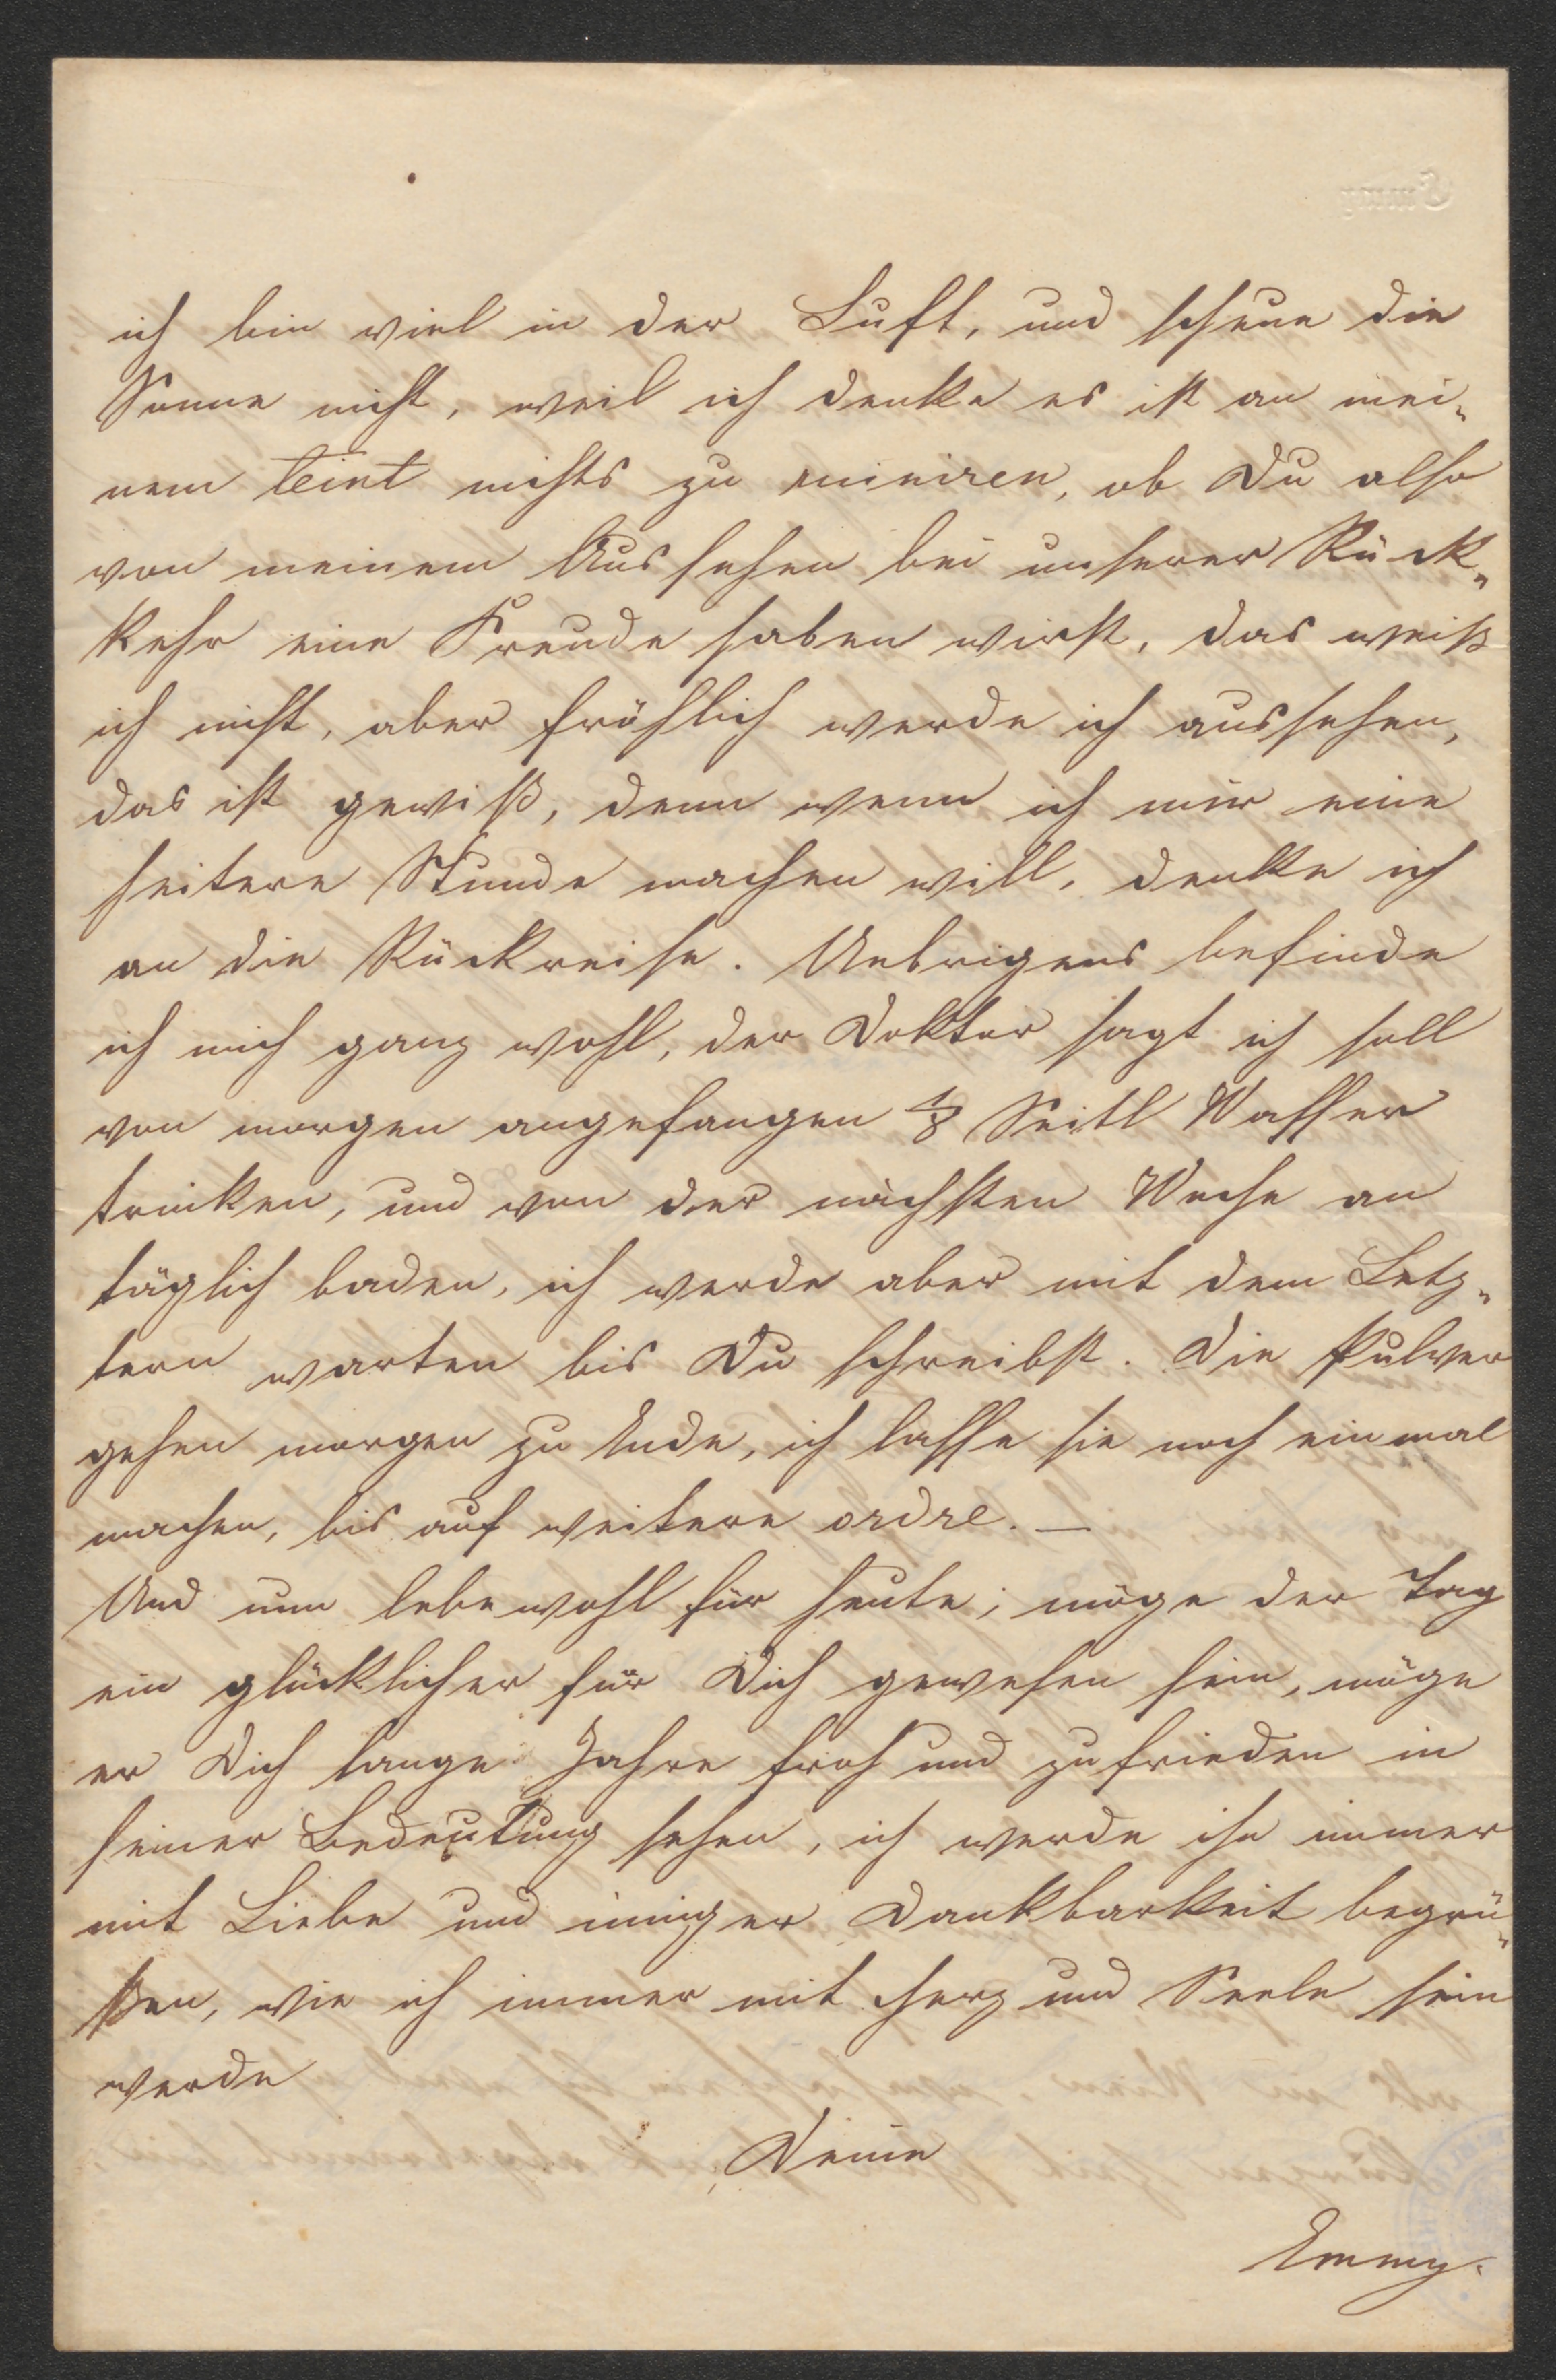 ich bin viel in der Luft, und scheue die
Sonne nicht, weil ich denke es ist an mei-
nem teint nichts zu ruiniren, ob Du also
von meinem Aussehen bei unserer Rück-
kehr eine Freude haben wirst, das weiß
ich nicht, aber fröhlich werde ich aussehen,
das ist gewiß, denn wenn ich mir eine
heitere Stunde machen will, denke ich
an die Rückreise. Uebrigens befinde
ich mich ganz wohl, der Doktor sagt ich soll
von morgen angefangen 1/8 Seitl Wasser
trinken, und von der nächsten Woche an
täglich baden, ich werde aber mit dem Letz-
tern warten bis Du schreibst. Die Pulver
gehen morgen zu Ende, ich lasse sie noch einmal
machen, bis auf weitere ordre. —
Und nun lebe wohl für heute; möge der Tag
ein glücklicher für Dich gewesen sein, möge
er Dich lange Jahre froh und zufrieden in
seiner Bedeutung sehen, ich werde ihn immer
mit Liebe und inniger Dankbarkeit begrü-
ßen, wie ich immer mit Herz und Seele sein
werde
Deine
Emmy.